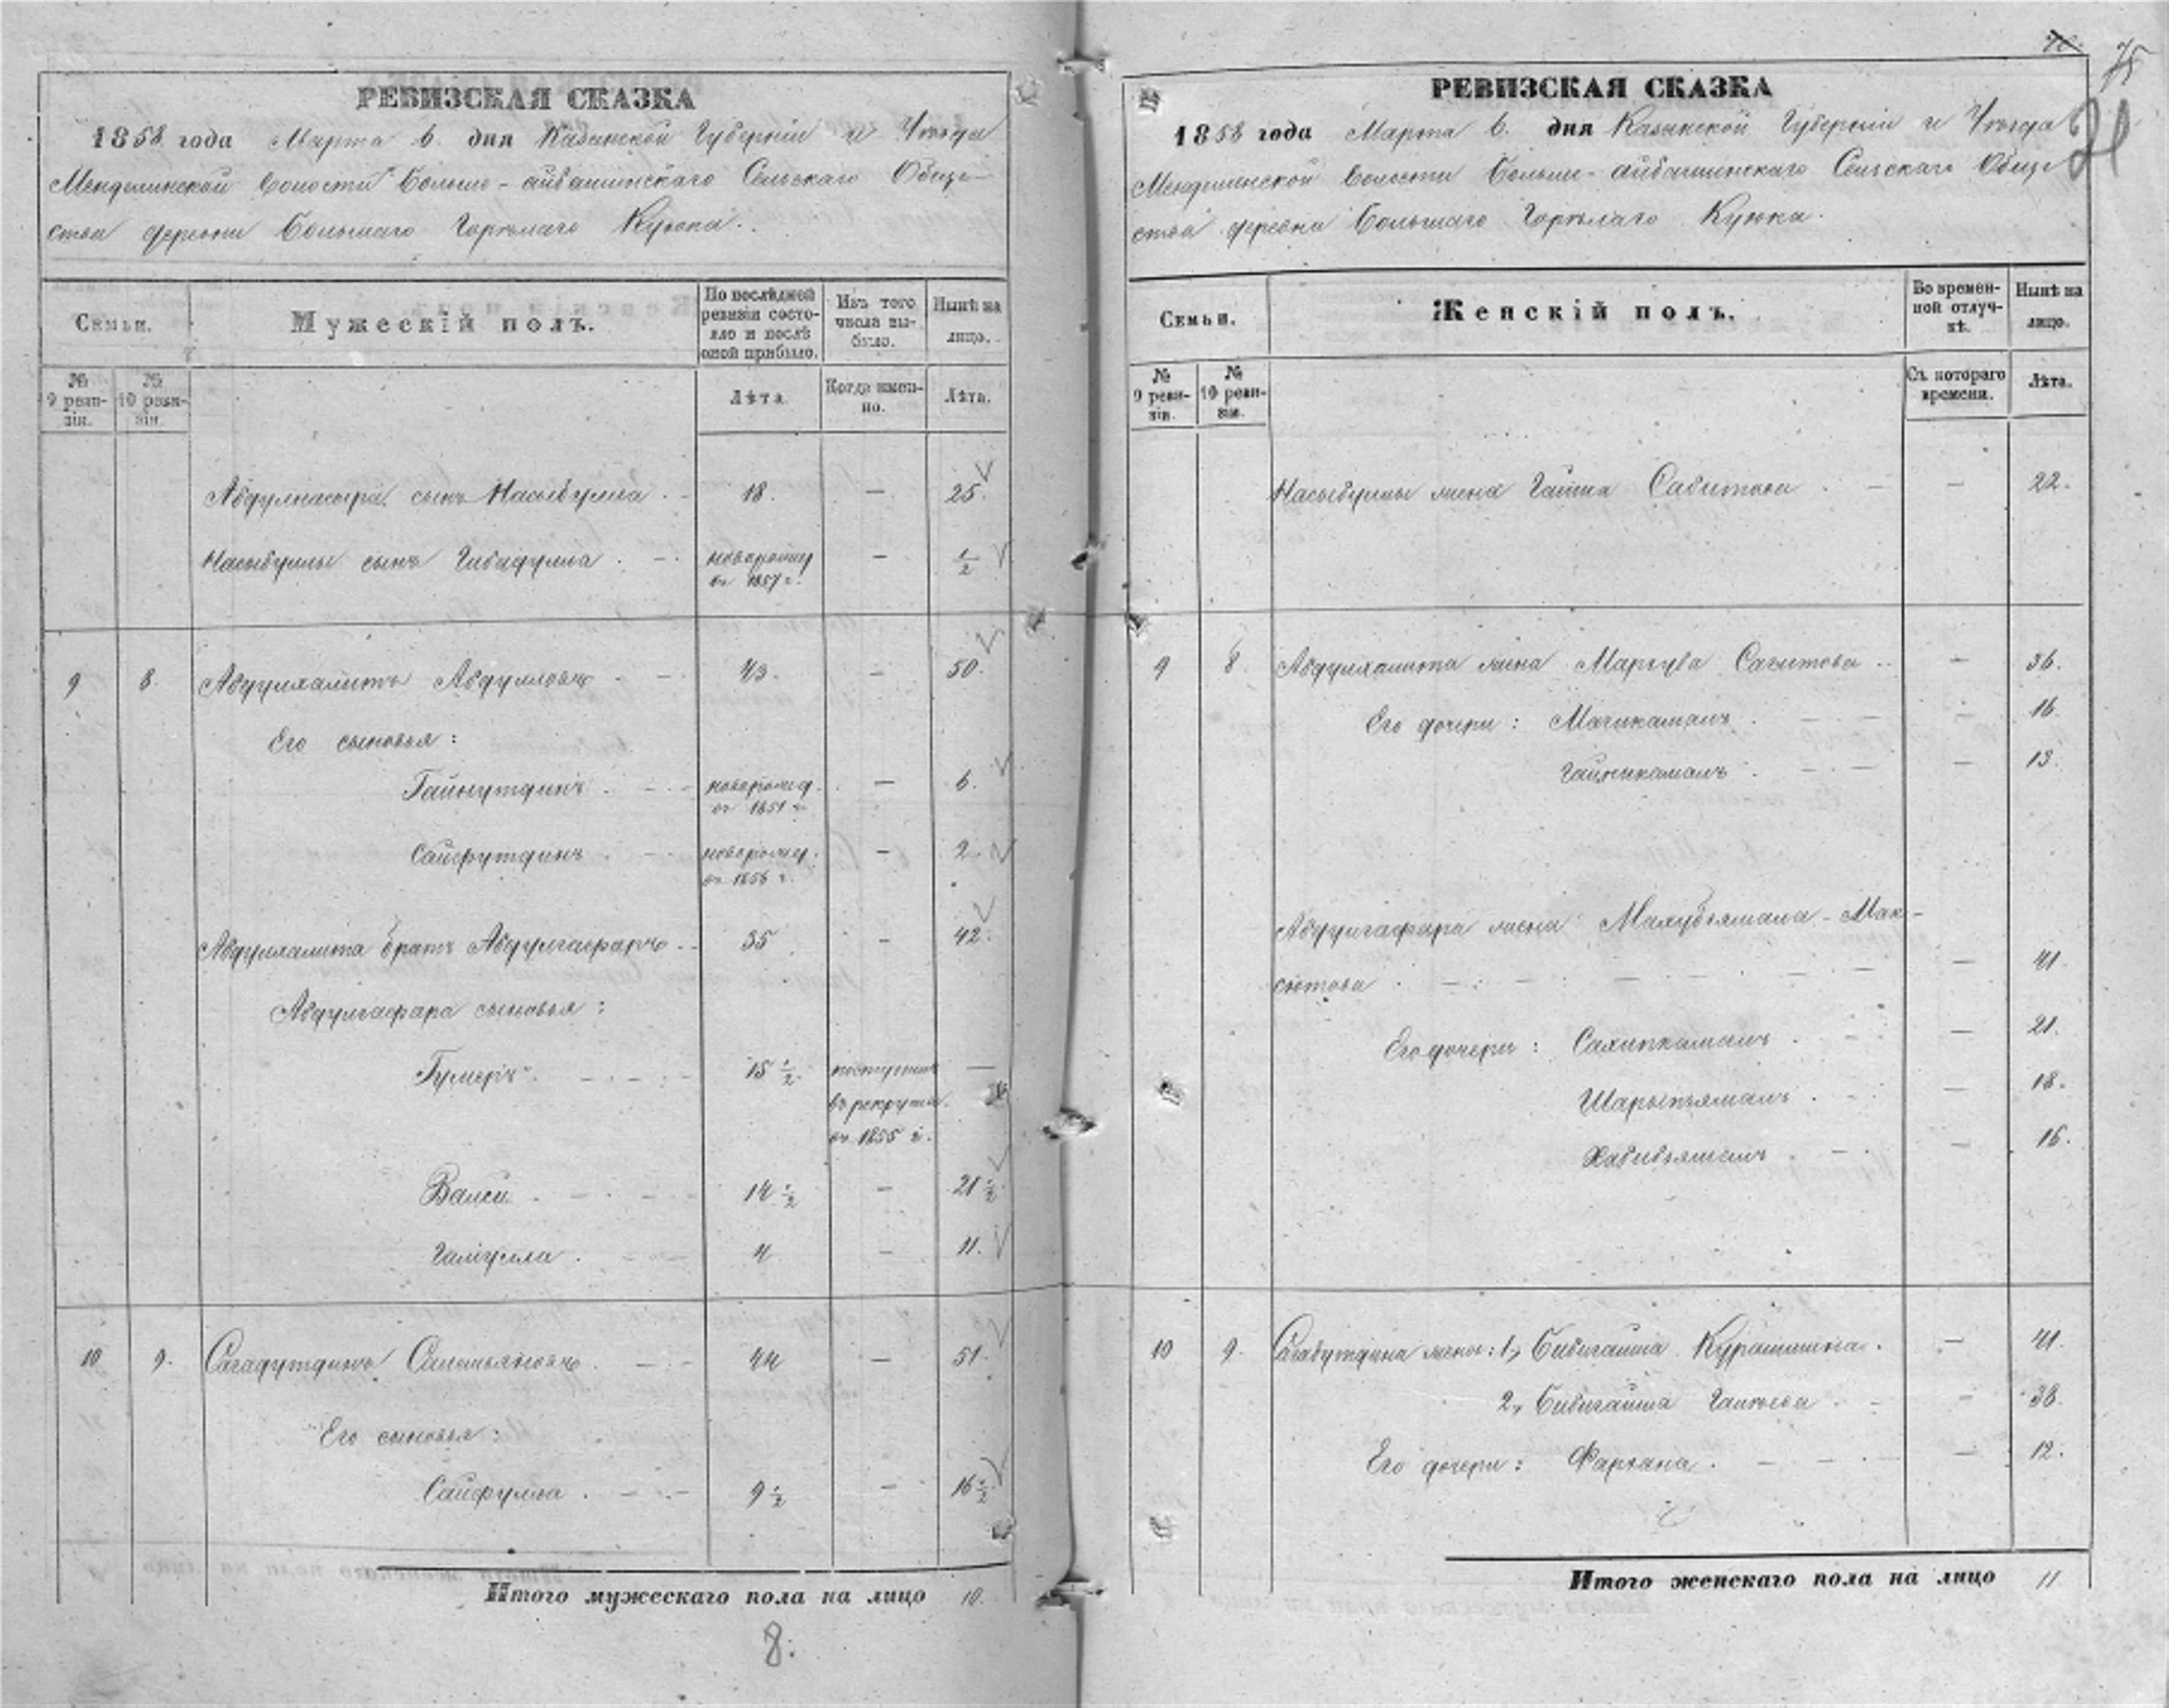 РЕВИЗСКАЯ СКАЗКА
1858 года Марта 6. дня Казанской Губернiи и Уѣзда
Менделинской волости Больше-айбашинскаго Сельскаго Обще-
ства деревни Большаго Горѣлаго Куюка.
Семьи.
Мужескiй полъ.
По послѣдней ревизiи состояло и послѣ оной прибыло.
Изъ того числа выбыло.
Нынѣ на лицо.
№ 9 ревизiи.
№ 10 ревизiи.
Лѣта
Когда именно.
Лѣта.
Абдулнасыра сынъ Насыбулла . - 18. — 25.
Насыбуллы сынъ Гибадулла . - новорожд — 1/2
въ 1857 г.
9 8. Абдулхалитъ Абдулловъ . - 43. — 50.
Его сыновья :
Гайнутдинъ . - новорожд. — 6.
въ 1851 г.
Сайфутдинъ . - новорожд. — 2.
въ 1856 г.
Абдулхалита братъ Абдулгафаръ . - 35 - 42.
Абдулгафара сыновья :
Гумеръ . - 15 1/2. поступилъ —
въ рекруты
въ 1855 г.
Валей . - 14 1/2 — 21 1/2.
Галiулла . 4 - 11.
10 9. Сагадутдинъ Сапельяновъ . - 44 — 51.
Его сыновья :
Сайфулла . - 9 1/2 — 16 1/2
Итого мужескаго пола на лицо 10.
8.
75
21
РЕВИЗСКАЯ СКАЗКА
1858 года Марта 6. дня Казанской Губернiи и Уѣзда
Менделинской волости Больше-айбашинскаго Сельскаго Обще
ства деревни Большаго Горѣлаго Куюка.
Семьи.
Женскiй полъ.
Во временной отлучкѣ.
Нынѣ на лицо.
№ 9 ревизiи.
№ 10 ревизiи.
Съ котораго времени.
Лѣта.
Насыбуллы жена Гайша Сабитова . — — 22.
9 8. Абдулхалита жена Маргуба Сагитова .. — 36.
Его дочери : Магикамалъ . — 16.
Гайникамалъ . — 13.
Абдулгафара жена Махубзямала - Мак-
сютова . — 41.
Его дочери : Сахипкамалъ . — 21.
Шарыпзямалъ . — 18.
Хабибзямалъ . — 16.
10 9. Сагадутдина жены : 1, Бибигайша Курамшина . — 41.
2, Бибигайша . — 38.
Его дочери : Фархана . — 12.
Итого женскаго пола на лицо 11